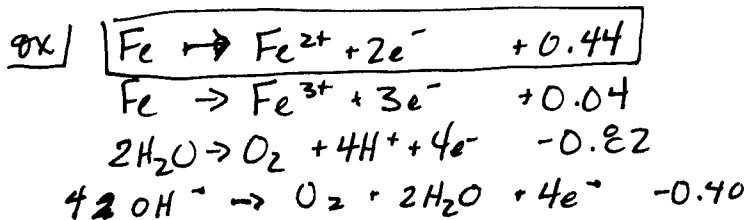 ox/ Fe → Fe²⁺ + 2e⁻ +0.44
Fe → Fe³⁺ + 3e⁻ +0.04
2H₂O → O₂ + 4H⁺ + 4e⁻ -0.82
4 OH⁻ → O₂ + 2H₂O + 4e⁻ -0.40